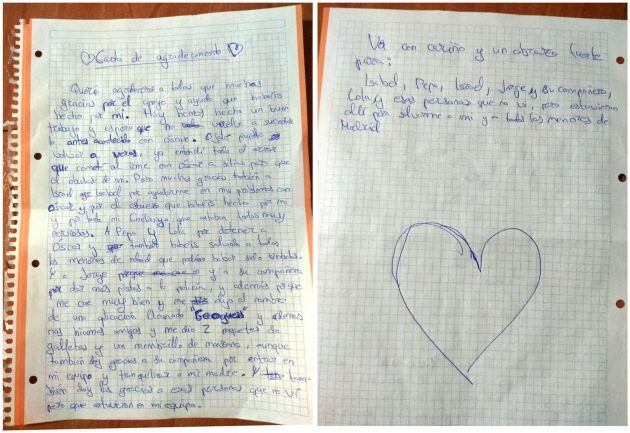 ♡Carta de agradecimiento♡
Quería agradecerle a todos que muchas
gracias por el apoyo y ayuda que habeis
hecho por mi. Hoy hemos hecho un buen
trabajo y espero que no vuelva a suceder
lo antes acontecido con oscar. Ojala pueda
volver a veros, ya entendí todo el error
que cometí al irme con oscar a sitios para que
el de mi. Pero muchas gracias también a
Israel Isabel por ayudarme en mis problemas con
Oscar y por el que habeis hecho por mi
y por toda mi familia ya que estaban todos muy
nerviosos. A Pepa y Lola por detener a
Oscar y también habeis salvado a todos
los menores de edad que podrían haber sido violados.
Y a Jorge y a su compañera
por dar más pistas a la policía, y además porque
me cae muy bien y me dijo el nombre
de una aplicación llamada "Geogues" y además
nos hicimos amigos y me dio 2 paquetes de
galletas y un membrillo de manzana, aunque
también doy gracias a su compañera por entrar en
mi equipo y tranquilizar a mi madre. Y tam-
bién doy las gracias a esas personas que no vi
pero que estuvieron en mi equipo.
Va con cariño y un abrazo fuerte
para:
Isabel, Pepa, Israel, Jorge y su compañera,
Lola y esas personas que no vi, pero estuvieron
allí para salvarme a mi y a todos los menores de
Madrid